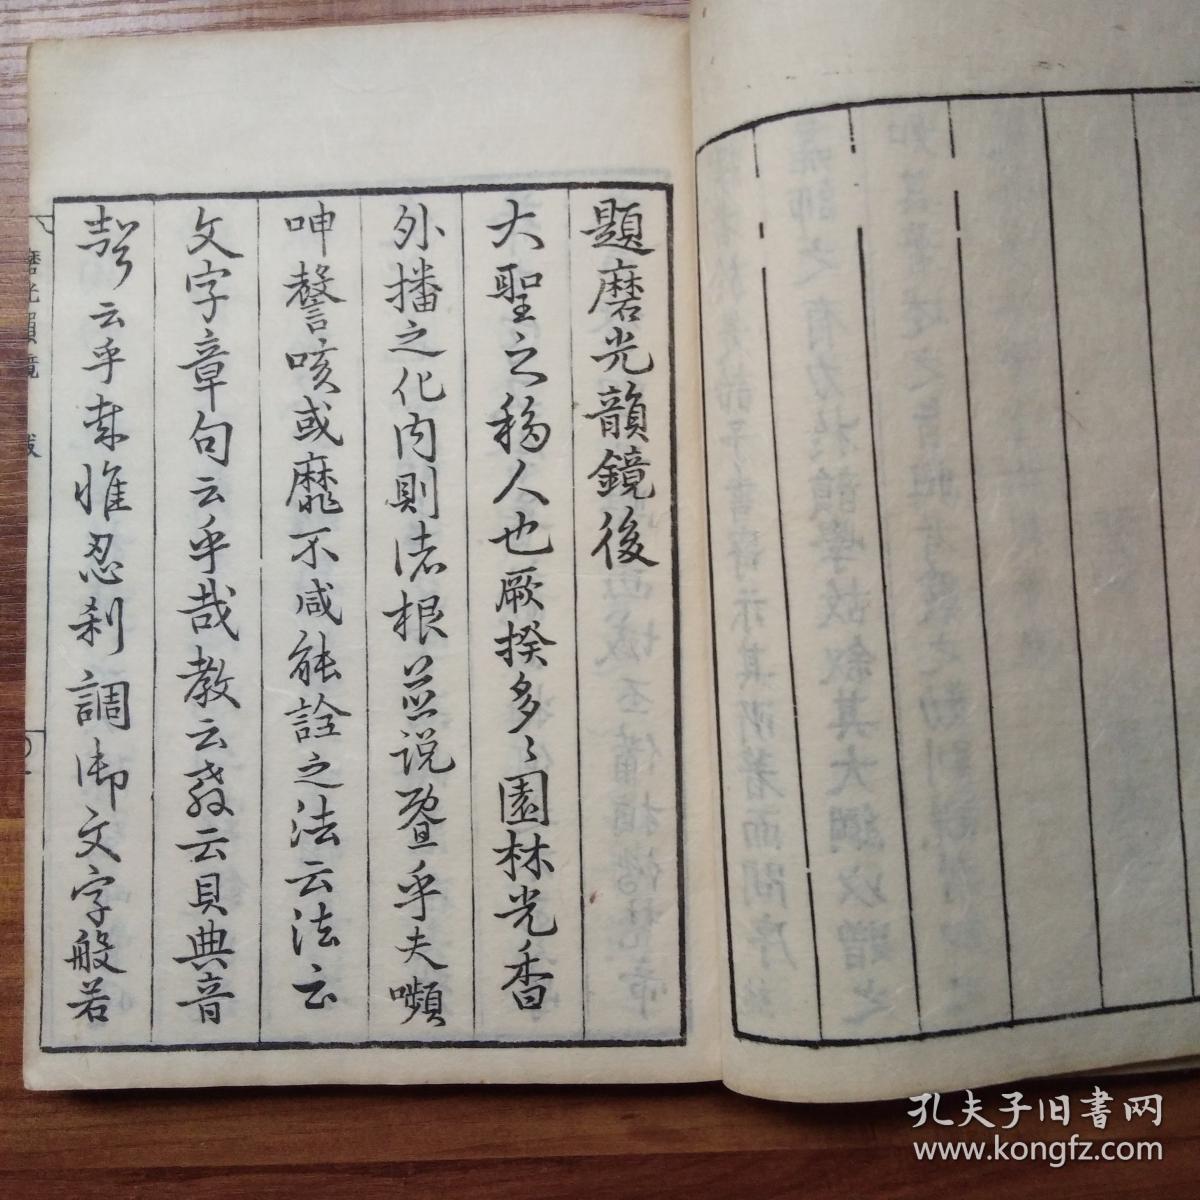 題磨光韻鏡後
大聖之移人也厥揆多々園林光香
外播之化内則諸根並説曁乎夫嚬
呻謦咳或靡不咸能詮之法云法云
文字章句云乎哉教云教云貝典音
聲云乎惟忍刹調御文字般若
磨光韻鏡 跋
孔夫子旧书网
www.kongfz.com